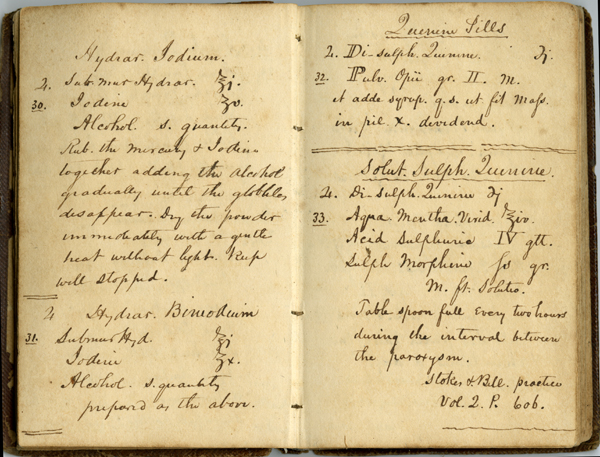 Hydrar. Iodium.
♃. Sub. mur Hydrar. ℥j.
30. Iodine ʒv.
Alcohol. s. quantity.
Rub. the mercury & Iodine
together adding the alcohol
gradually until the globules
disappear. Dry the powder
immediately with a gentle
heat without light. Keep
well stopped.
♃ Hydrar. Biniodium
31. Submur Hyd. ℥j
Iodine ʒx.
Alcohol. s. quantity
prepared as the above.
Quenine Pills
♃. Di-sulph. Quenine. ℈j
32. Pulv. Opii gr. II. M.
et adde syrup. q.s. ut fit Mass.
in pil X. dividend.
Solut. Sulph. Quenine.
♃. Di-sulph. Quinine ℈j
33. Aqua Mentha Virid. ℥iv.
Acid Sulphuric IV gtt.
Sulph Morphine ſs gr.
M. ft. Solutio.
Table spoon full every two hours
during the interval between
the paroxysm.
Stokes & Bell. practice
Vol. 2. P. 606.